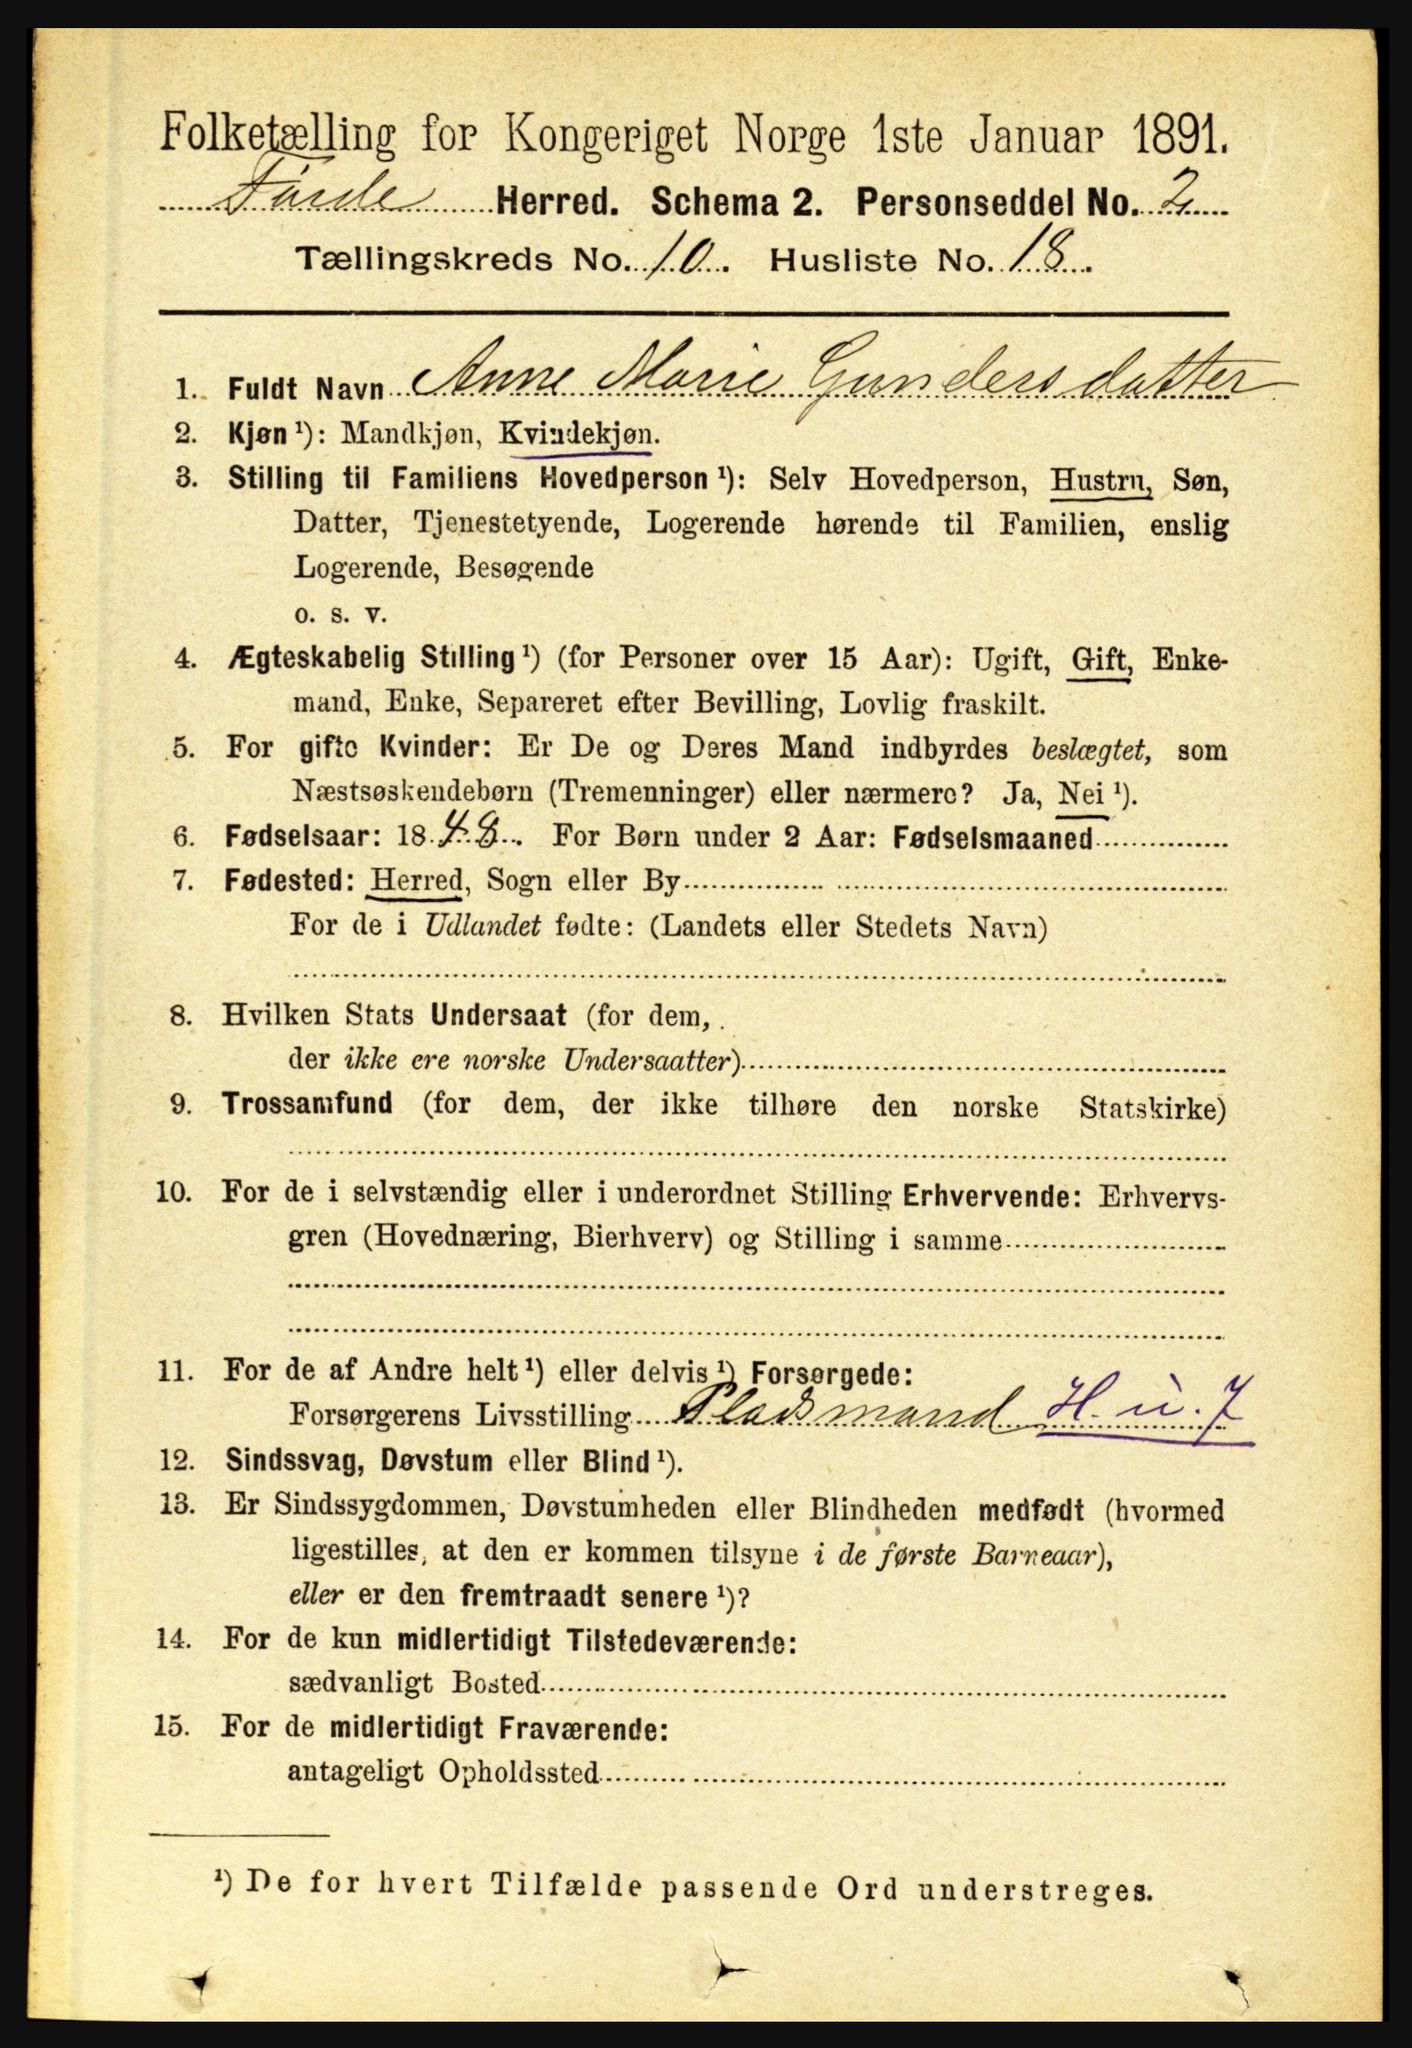 Folketælling for Kongeriget Norge 1ste Januar 1891.
Førde Herred. Schema 2. Personseddel No. 2
Tællingskreds No. 10. Husliste No. 18.
1. Fuldt Navn Anne Marie Gundersdatter
2. Kjøn ¹): Mandkjøn, Kvindekjøn.
3. Stilling til Familiens Hovedperson ¹): Selv Hovedperson, Hustru, Søn,
Datter, Tjenestetyende, Logerende hørende til Familien, enslig
Logerende, Besøgende
o. s. v.
4. Ægteskabelig Stilling ¹) (for Personer over 15 Aar): Ugift, Gift, Enke-
mand, Enke, Separeret efter Bevilling, Lovlig fraskilt.
5. For gifte Kvinder: Er De og Deres Mand indbyrdes beslægtet, som
Næstsøskendebørn (Tremenninger) eller nærmere? Ja, Nei ¹).
6. Fødselsaar: 1848. For Børn under 2 Aar: Fødselsmaaned
7. Fødested: Herred, Sogn eller By
For de i Udlandet fødte: (Landets eller Stedets Navn)
8. Hvilken Stats Undersaat (for dem,
der ikke ere norske Undersaatter)
9. Trossamfund (for dem, der ikke tilhøre den norske Statskirke)
10. For de i selvstændig eller i underordnet Stilling Erhvervende: Erhvervs-
gren (Hovednæring, Bierhverv) og Stilling i samme
11. For de af Andre helt ¹) eller delvis ¹) Forsørgede:
Forsørgerens Livsstilling Pladsmand H. u. 7
12. Sindssvag, Døvstum eller Blind ¹).
13. Er Sindssygdommen, Døvstumheden eller Blindheden medfødt (hvormed
ligestilles, at den er kommen tilsyne i de første Barneaar),
eller er den fremtraadt senere ¹)?
14. For de kun midlertidigt Tilstedeværende:
sædvanligt Bosted
15. For de midlertidigt Fraværende:
antageligt Opholdssted
¹) De for hvert Tilfælde passende Ord understreges.